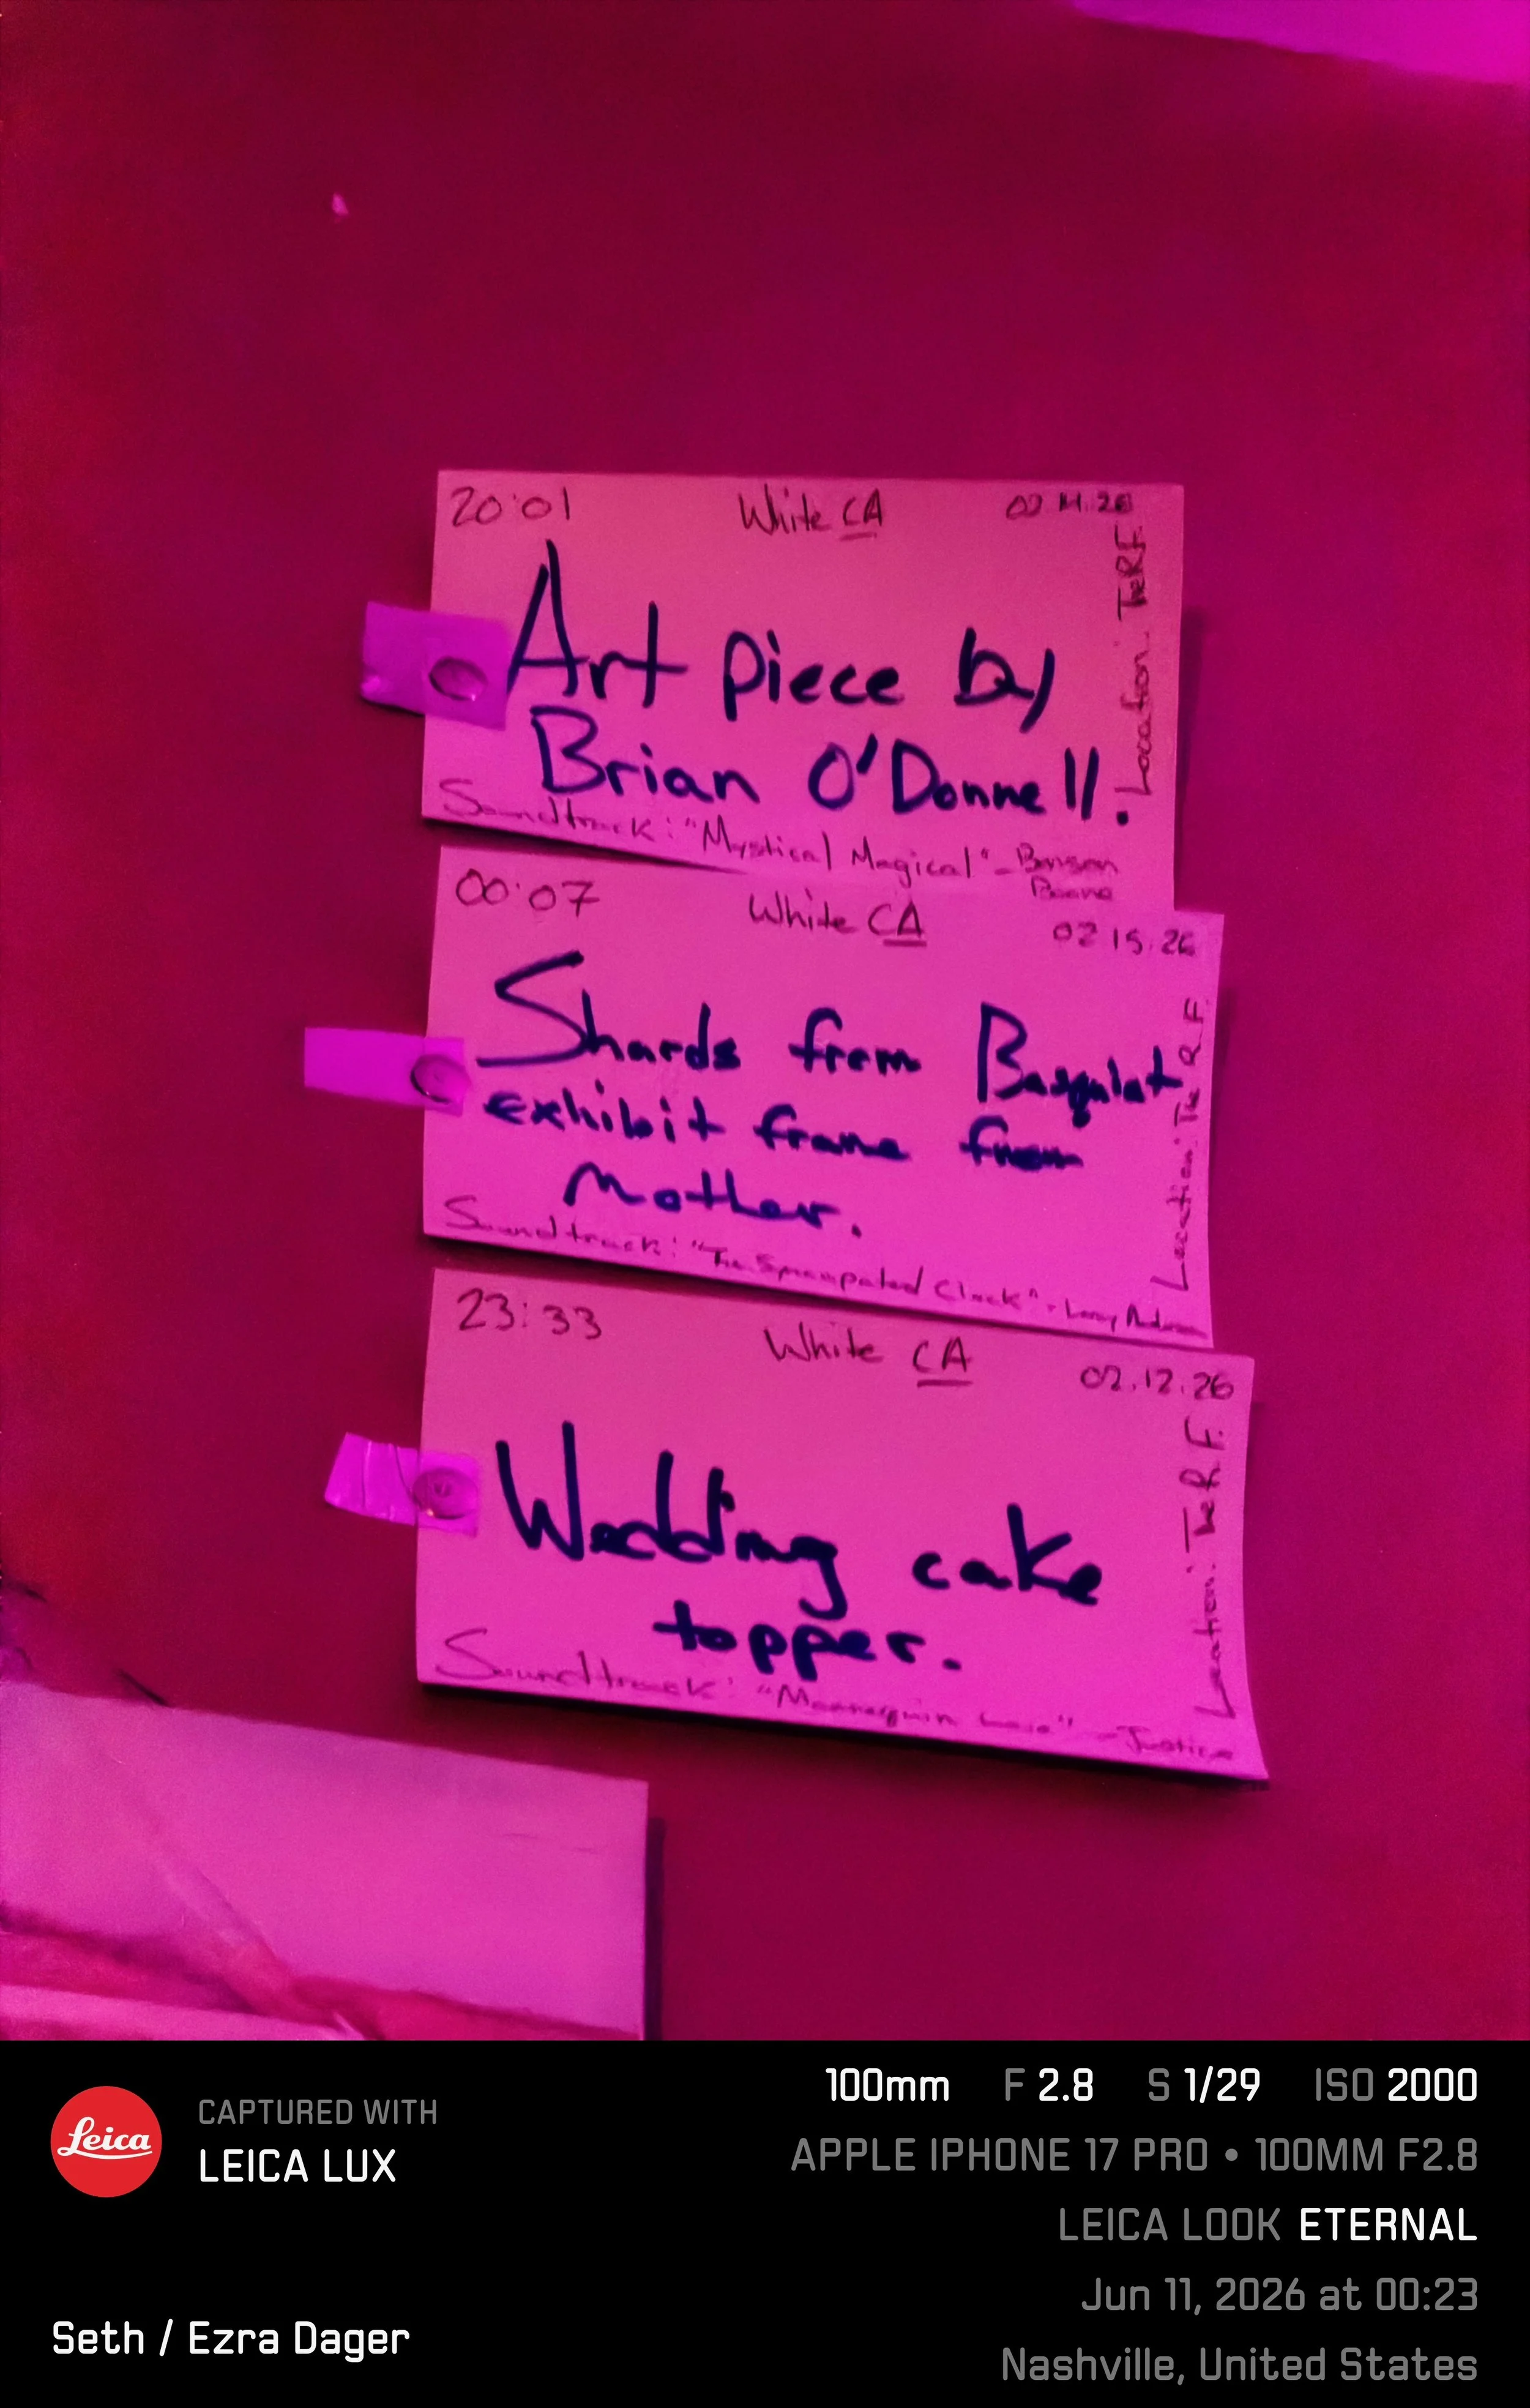 20:01 White CA
Art piece by
Brian O'Donnell.
Location: The R.F.
Soundtrack: "Mystical Magical" - Benson
Boone
00:07 White CA 02.15.26
Shards from Basquiat
exhibit frame from
Mother.
Location: The R.F.
Soundtrack: "The Syncopated Clock" - Leroy Anderson
23:33 White CA 02.12.26
Wedding cake
topper.
Location: The R.F.
Soundtrack: "Mannequin Love" - Justice
Leica
CAPTURED WITH
LEICA LUX
Seth / Ezra Dager
100mm F 2.8 S 1/29 ISO 2000
APPLE IPHONE 17 PRO • 100MM F2.8
LEICA LOOK ETERNAL
Jun 11, 2026 at 00:23
Nashville, United States